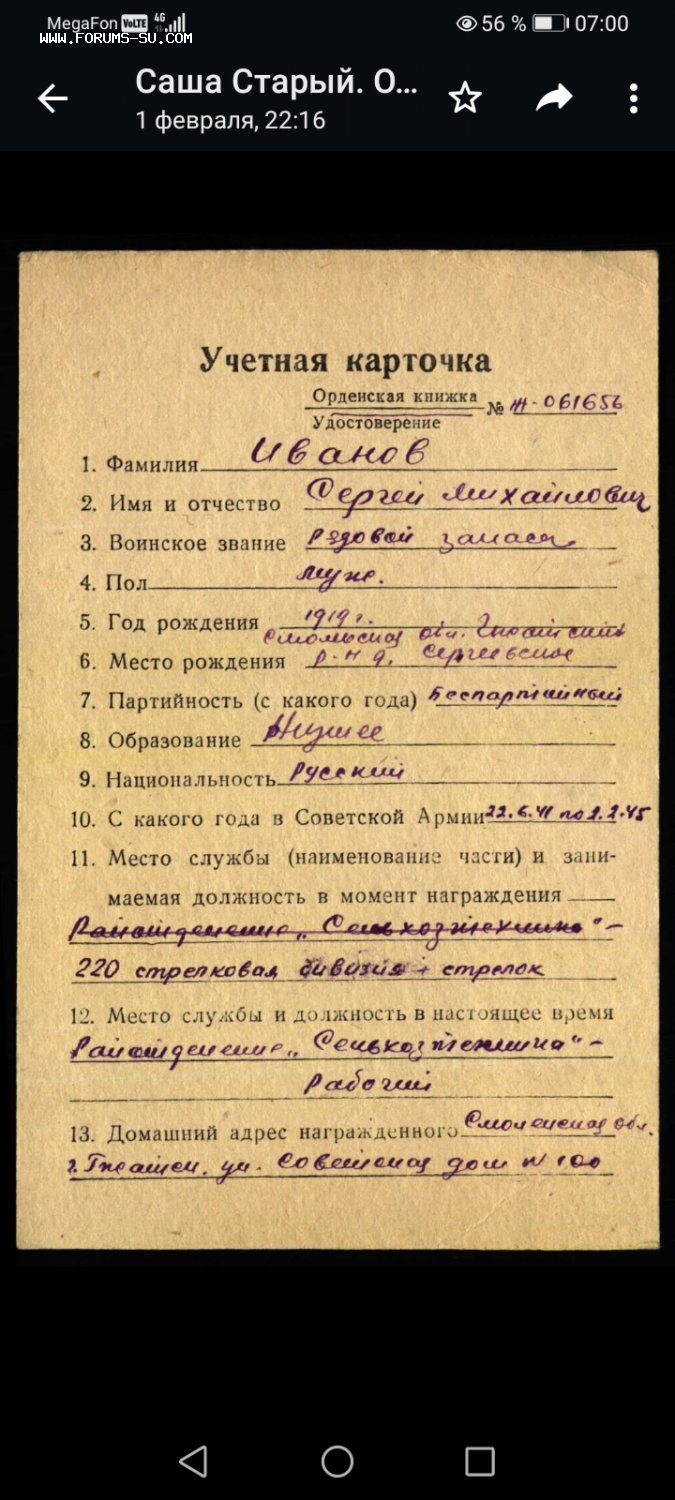 MegaFon VoLTE 4G 56 % 07:00
www.FORUMS-SU.COM
Саша Старый. О...
1 февраля, 22:16
Учетная карточка
Орденская книжка
Удостоверение № Ж-061656
1. Фамилия Иванов
2. Имя и отчество Сергей Михайлович
3. Воинское звание Рядовой запаса
4. Пол муж.
5. Год рождения 1919 г.
Смоленская обл. Гжатский
6. Место рождения р-н д. Сергеевское
7. Партийность (с какого года) Беспартийный
8. Образование Низшее
9. Национальность Русский
10. С какого года в Советской Армии 22.6.41 по 2.2.45
11. Место службы (наименование части) и зани-
маемая должность в момент награждения
Райотделение „Сельхозтехника" -
220 стрелковая дивизия - стрелок
12. Место службы и должность в настоящее время
Райотделение „Сельхозтехника" -
Рабочий
13. Домашний адрес награжденного Смоленская обл.
г. Гжатск, ул. Советская дом № 100